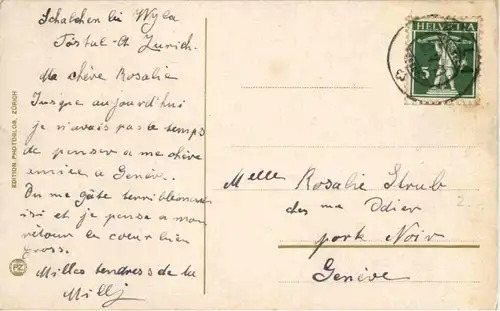 Schalchen bei Wyla
Töstal Ct Zurich.
Ma chère Rosalie
Jusque aujourd'hui
je n'avais pas le temps
de penser a me chère
amiee a Genève.
On me gâte terriblement
isi et je pense a mon
retour le coeur bien
gross.
Milles tendress de ta
Milly
EDITION PHOTOGLOB, ZÜRICH
PZ
HELVETIA
5
Melle Rosalie Strub
des ma Odier
porte Noir
Genève
2.